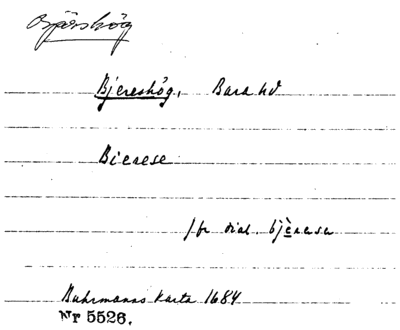 Bjärshög
Bjereshög, Bara hd
Bierese
jfr dial. bjèrasa
Buhrmanns karta 1684
Nr 5526.